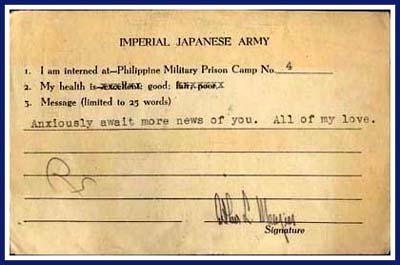 IMPERIAL JAPANESE ARMY
1. I am interned at—Philippine Military Prison Camp No. 4
2. My health is—excellent; good; fair; poor.
3. Message (limited to 25 words)
Anxiously await more news of you. All of my love.
Signature